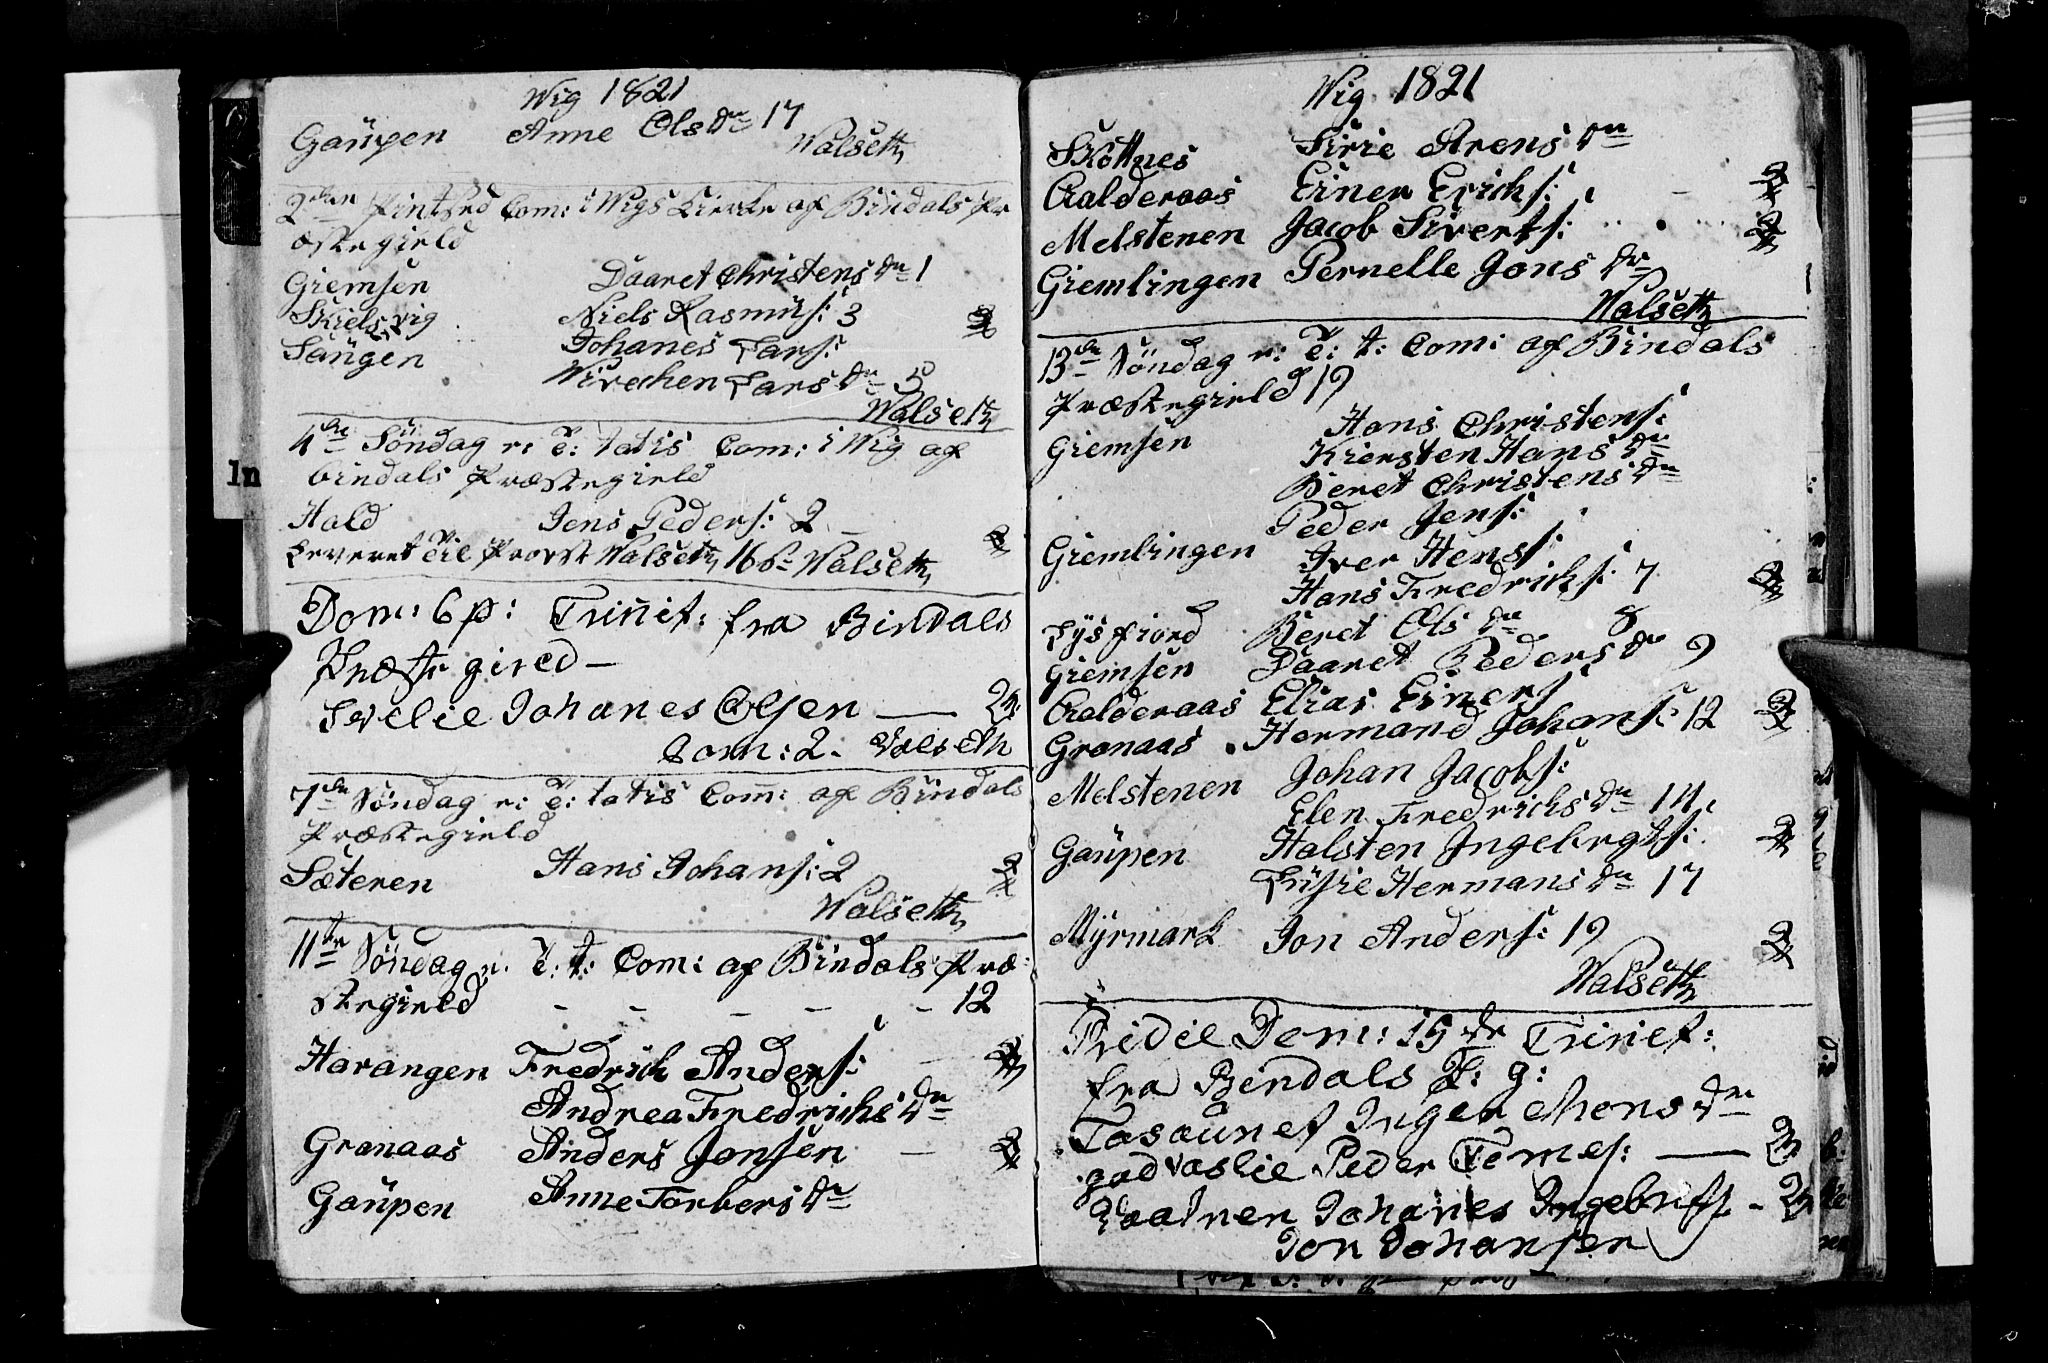 Wig 1821
Gaüpen Anne Olsdr 17
Walseth
2den Pintsed Com: i Wigs Kirke af Bindals Pr
æstegield
Giemsen Daaret Christensdr 1
Skielsvig Niels Rasmüs: 3
Saügen Johanes Lars:
Wivechen Larsdr 5
Walseth
4de Söndag n: T: tatis Com: i Wig af
bindals Præstegield
Hald Jens Peders: 2
Leveret Til Provst Walseth 16 Walseth
Dom: 6 p: Trinit: fra Bindals
Præstegield
Johanes Olsen — 2
Com: 2. Valseth
7de Söndag n: T: tatis Com: af Bindals
Præstegield
Sæteren Hans Johans: 2
Walseth
11te Söndag n: T: t: Com: af Bindals Præ
stegield - - - - - 12
Harangen Fredrich Anders:
Andrea Fredrichsdr
Granaas Anders Jonsen
Gaüpen Anne Torbersdr
Wig 1821
Skottnes Sirie Arensdr
Aalderaas Einer Erichs:
Melstenen Jacob Siverts:
Giemlingen Pernelle Jonsdr
Walseth
13de Söndag n: T: t: Com: af Bindals
Præstegield 19
Giemsen Hans Christens:
Kiersten Hansdr
Beret Christensdr
Peder Jens:
Giemlingen Iver Hens:
Hans Fredrichs: 7
Lysfiord Beret Olsdr 8
Giemsen Daaret Pedersdr 9
Aalderaas Elias Einers:
Granaas Hermand Johans: 12
Melstenen Johan Jacobs:
Elen Fredrichsdr 14
Gaüpen Halsten Ingebrgts:
Lüsie Hermansdr 17
Myrmark Jon Anders: 19
Walseth
Pridie Dom: 15 de Trinit:
fra Bindals P: g:
Inger Monsdr
Peder Tomes: —
Johanes Ingebrits: - 2
Jon Johansen